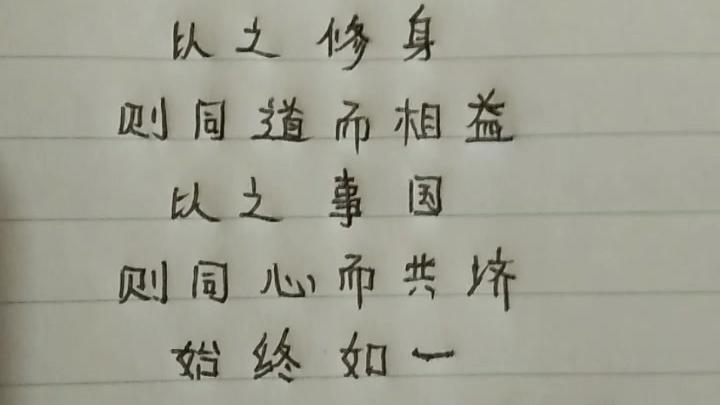 以之修身
则同道而相益
以之事国
则同心而共济
始终如一